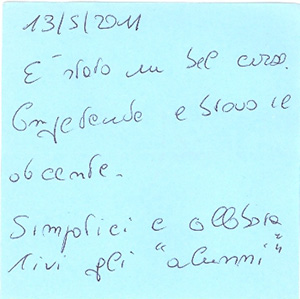 13/5/2011
E' stato un bel corso.
Competente e bravo il
docente.
Simplici e collabora
tivi gli "alunni"